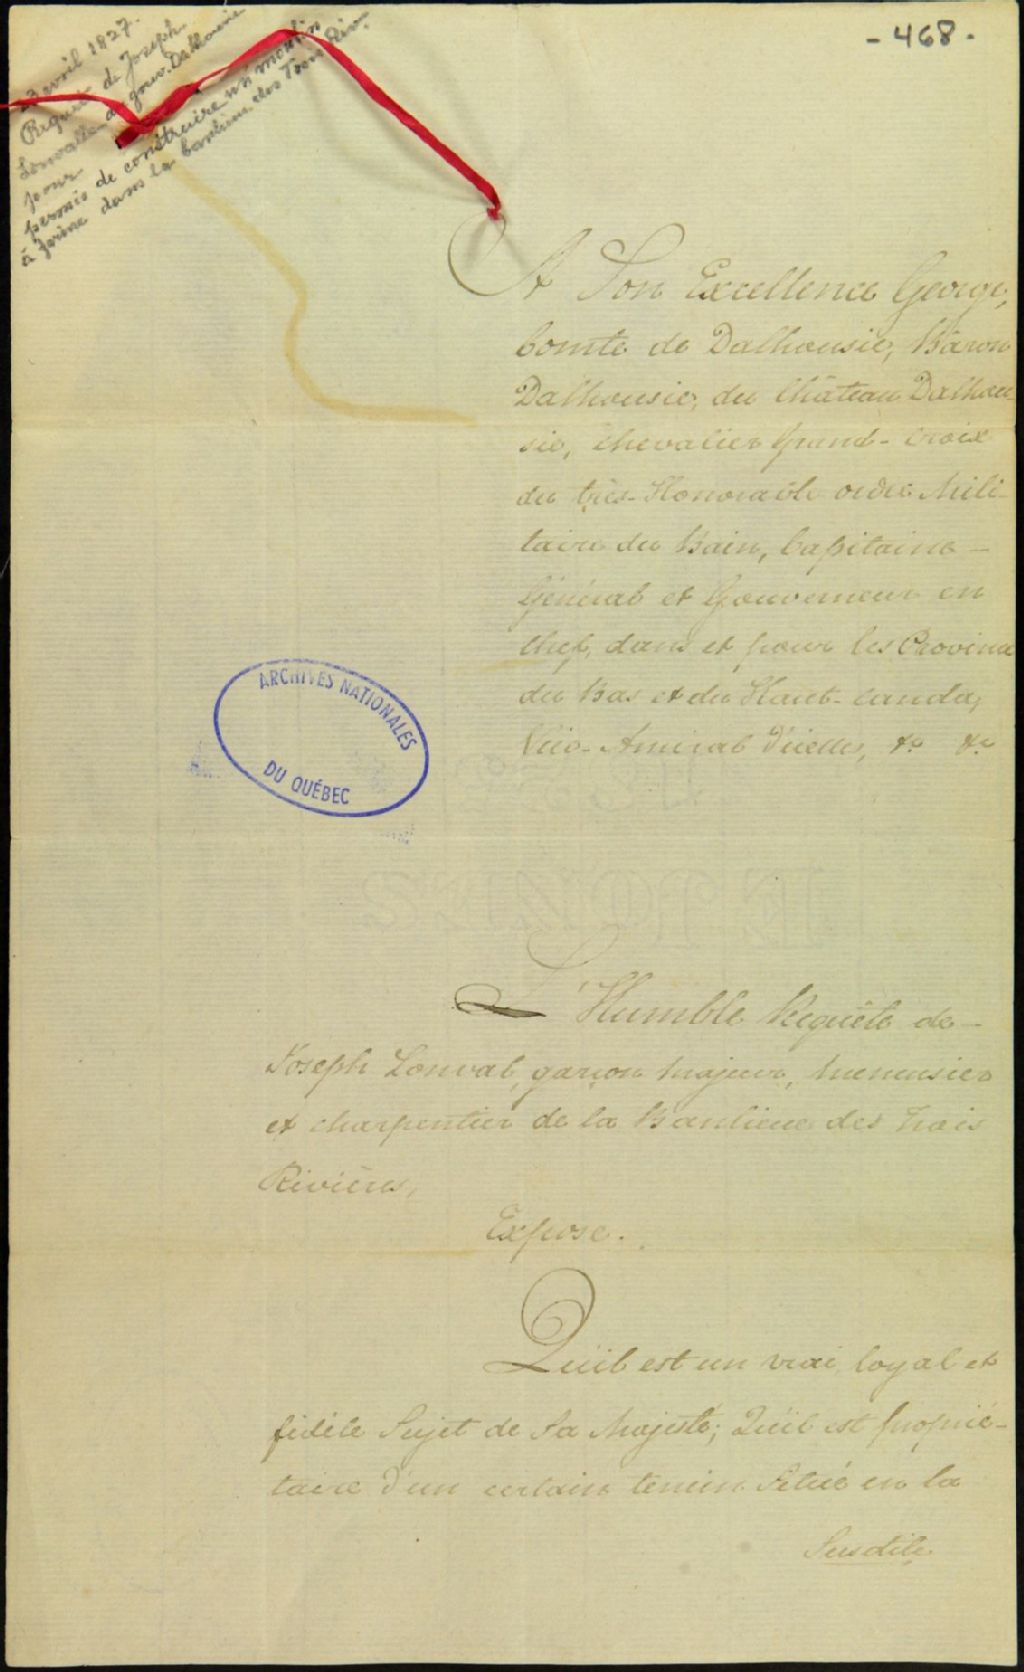 - 468 -
23 avril 1827.
Requête de Joseph
Lonvalle au gouv. Dalhousie
pour
permis de construire un moulin
à farine dans la banlieue des Trois Riv.
A Son Excellence George,
Comte de Dalhousie, Baron
Dalhousie, du Château Dalhou-
sie, Chevalier Grand-Croix
du très-Honorable ordre Mili-
taire du Bain, Capitaine-
Général et Gouverneur en
Chef, dans et pour les Province
du Bas et du Haut-Canda,
Vice-Amiral d'icelles, &c &c
ARCHIVES NATIONALES
DU QUÉBEC
L'Humble Requête de-
Joseph Lonval, garçon Majeur, Menuisier
et charpentier de la Banlieue des Trois
Rivières,
Expose.
Qu'il est un vrai, loyal et
fidéle Sujet de Sa Majesté; Qu'il est proprié-
taire d'un certain terrein Situé en la
Susdite